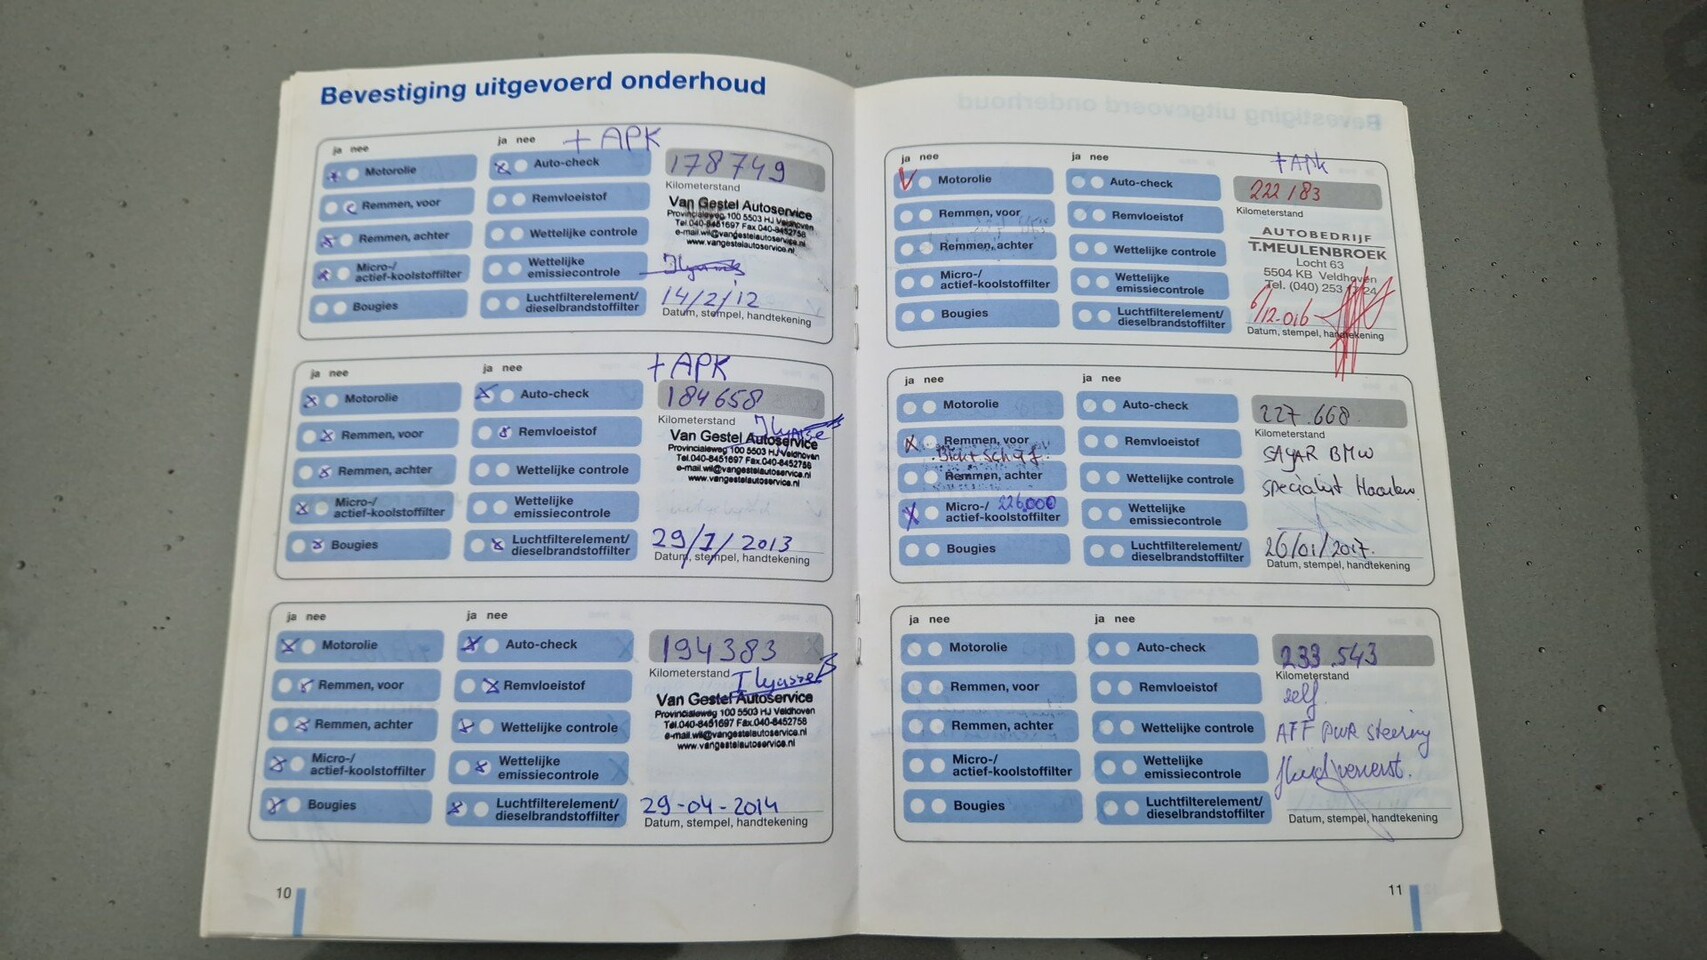 Bevestiging uitgevoerd onderhoud
+ APK
ja nee
ja nee
Motorolie
Auto-check
178749
Remmen, voor
Remvloeistof
Kilometerstand
Remmen, achter
Wettelijke controle
Van Gestel Autoservice
Provincialeweg 100 5503 HJ Veldhoven
Tel.040-8451697 Fax 040-8452758
e-mail.wil@vangestelautoservice.nl
www.vangestelautoservice.nl
Micro-/
actief-koolstoffilter
Wettelijke
emissiecontrole
Bougies
Luchtfilterelement/
dieselbrandstoffilter
14/2/12
Datum, stempel, handtekening
+ APK
ja nee
ja nee
Motorolie
Auto-check
184658
Remmen, voor
Remvloeistof
Kilometerstand
Van Gestel Autoservice
Provincialeweg 100 5503 HJ Veldhoven
Tel.040-8451697 Fax.040-8452758
e-mail.wil@vangestelautoservice.nl
www.vangestelautoservice.nl
Remmen, achter
Wettelijke controle
Micro-/
actief-koolstoffilter
Wettelijke
emissiecontrole
Bougies
Luchtfilterelement/
dieselbrandstoffilter
29/1/2013
Datum, stempel, handtekening
ja nee
ja nee
Motorolie
Auto-check
194383
Remmen, voor
Remvloeistof
Kilometerstand
Van Gestel Autoservice
Provincialeweg 100 5503 HJ Veldhoven
Tel.040-8451697 Fax.040-8452758
e-mail.wil@vangestelautoservice.nl
www.vangestelautoservice.nl
Remmen, achter
Wettelijke controle
Micro-/
actief-koolstoffilter
Wettelijke
emissiecontrole
Bougies
Luchtfilterelement/
dieselbrandstoffilter
29-04-2014
Datum, stempel, handtekening
10
+ APK
ja nee
ja nee
Motorolie
Auto-check
222183
Remmen, voor
Remvloeistof
Kilometerstand
AUTOBEDRIJF
T.MEULENBROEK
Locht 63
5504 KB Veldhoven
Tel. (040) 253
Remmen, achter
Wettelijke controle
Micro-/
actief-koolstoffilter
Wettelijke
emissiecontrole
Bougies
Luchtfilterelement/
dieselbrandstoffilter
6/12-016
Datum, stempel, handtekening
ja nee
ja nee
Motorolie
Auto-check
227.668
Remmen, voor
Remvloeistof
Kilometerstand
SAYAR BMW
specialist
Remmen, achter
Wettelijke controle
Micro-/ 226,000
actief-koolstoffilter
Wettelijke
emissiecontrole
Bougies
Luchtfilterelement/
dieselbrandstoffilter
26/01/2017.
Datum, stempel, handtekening
ja nee
ja nee
Motorolie
Auto-check
233.543
Remmen, voor
Remvloeistof
Kilometerstand
self.
Remmen, achter
Wettelijke controle
ATF PWR steering
fluid ververst.
Micro-/
actief-koolstoffilter
Wettelijke
emissiecontrole
Bougies
Luchtfilterelement/
dieselbrandstoffilter
Datum, stempel, handtekening
11